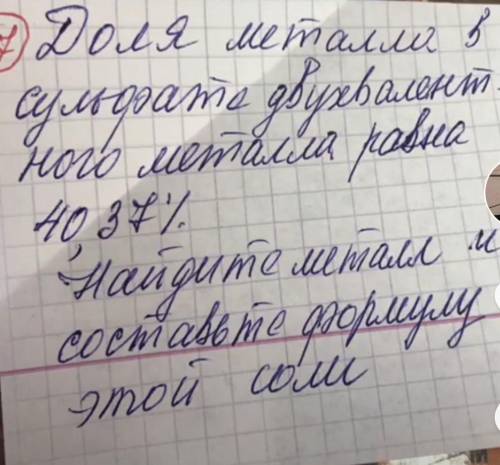 7 Доля металла в
сульфате двухвалент-
ного металла равна
40,37%.
Найдите металл и
составьте формулу
этой соли